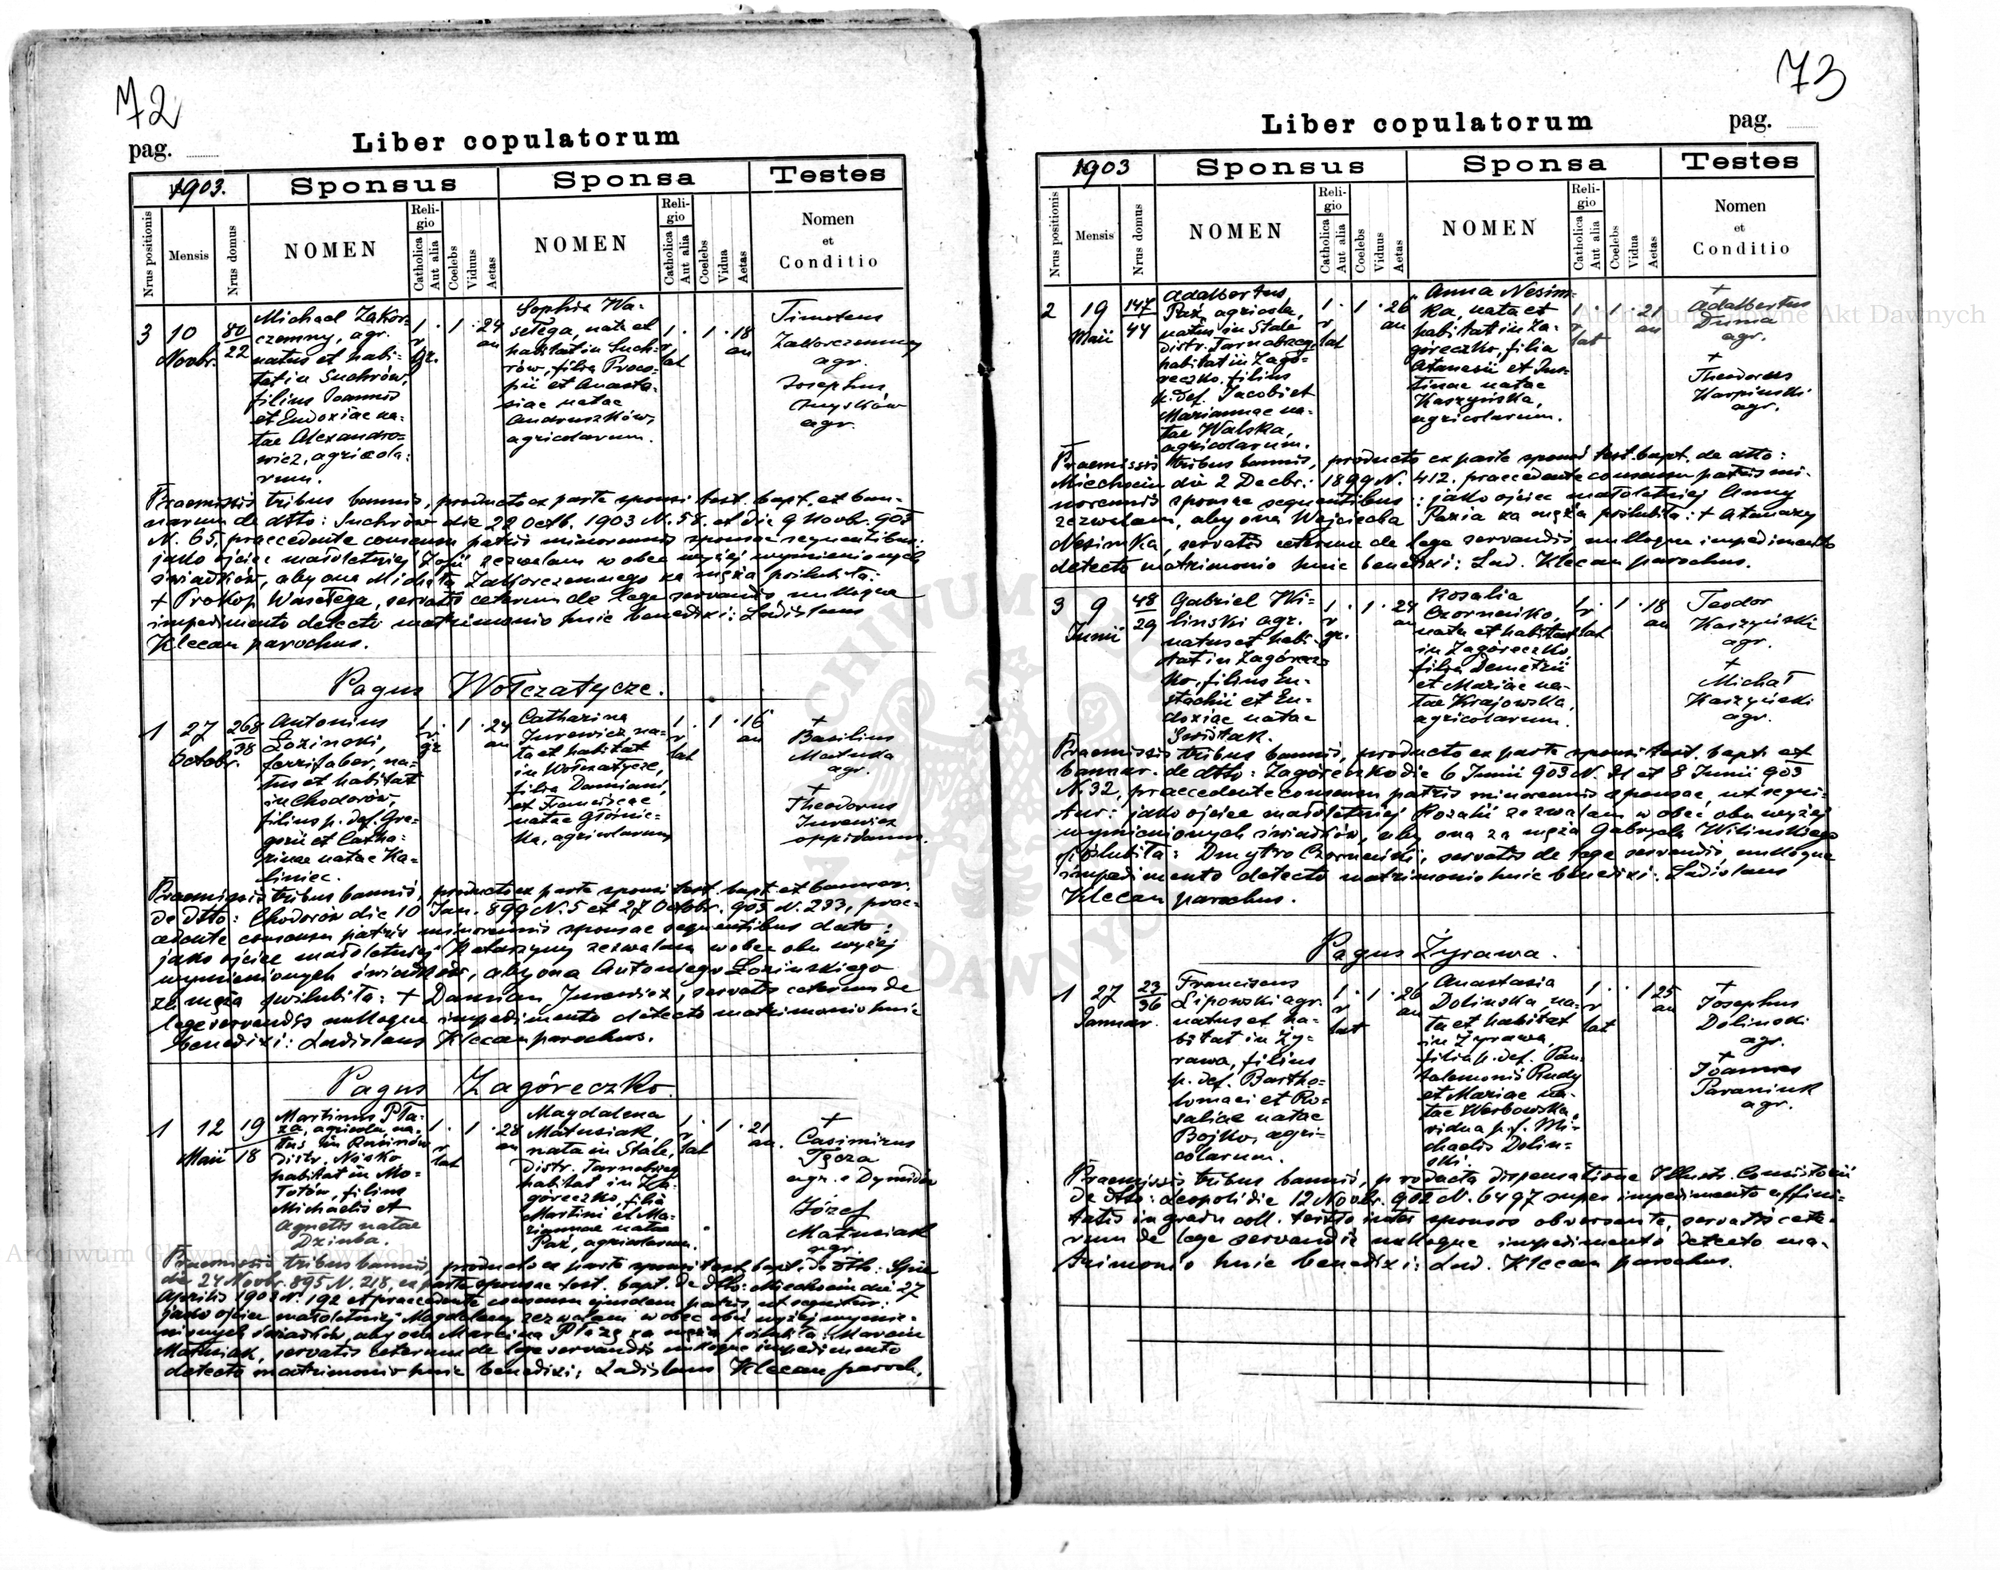 72
pag.
Liber copulatorum
1903.
Sponsus
Sponsa
Testes
Nrus positionis
Mensis
Nrus domus
NOMEN
Religio
Catholica
Aut alia
Coelebs
Viduus
Aetas
NOMEN
Religio
Catholica
Aut alia
Coelebs
Vidua
Aetas
Nomen
et
Conditio
3
10
Novbr.
80
22
Michael Zakor-
czemny, agr.
natus et habi-
tat in Suchrów,
filius Joannis
et Eudoxiae na-
tae Alexandro-
wicz, agricola-
rum.
1.
r
gr.
1
24
an
Sophia Wa-
sełega, nata et
habitat in Such-
rów, filia Proco-
pii et Anasta-
siae natae
Andruszków,
agricolarum.
1.
r
lat
1
18
an
Timoteus
Zakorczemny
agr.
Josephus
agr.
Praemissis tribus bannis, producto ex parte sponsi test. bapt. et ban-
narum de dtto: Suchrów die 22 Octb. 1903 N. 58. et die 9 Novbr. 903
N. 65, praecedente consensu patris minorennis sponsae sequentibus:
jako ojciec małoletniej Zofii zezwalam wobec wyżej wymienionych
świadków, aby ona Michała Zakorczemnego za męża poślubiła:
+ Prokop Wasełega, servatis ceterum de lege servandis nulloque
impedimento detecto matrimonio huic benedixi: Ladislaus
Klecan parochus.
Pagus Wołczatycze.
1
27
Octobr.
268
38
Antonius
Łozinski,
ferrifaber, na-
tus et habitat
in Chodorów,
filius p. def. Gre-
gorii et Catha-
rinae natae Ka-
liniec.
1.
r
gr
1
24
an
Catharina
Jurewicz na-
ta et habitat
in Wołczatycze,
filia Damiani,
et Franciscae
natae Głównic-
ka, agricolarum
1.
r
lat
1
16
an
+
Basilius
agr.
+
Theodorus
Jurewicz
oppidanus.
Praemissis tribus bannis, producto ex parte sponsi test. bapt. et bannor.
de dtto: Chodorów die 10 Jan. 899 N. 5 et 27 Octobr. 903 N. 233, prae-
cedente consensu patris minorennis sponsae sequentibus dato:
jako ojciec małoletniej Katarzyny zezwalam wobec obu wyżej
wymienionych świadków, aby ona Antoniego Łozinskiego
za męża poślubiła: + Damian Jurewicz, servatis ceterum de
lege servandis nulloque impedimento detecto matrimonio huic
benedixi: Ladislaus Klecan parochus.
Pagus Zagóreczko.
1
12
Maii
19
18
Martinus Pła-
za, agricola na-
tus in Rusinów
distr. Nisko
habitat in Mo-
łotów, filius
Michaelis et
Agnetis natae
Dziuba.
1.
r
lat
1
28
an
Magdalena
Matusiak
nata in Stale,
distr. Tarnobrzeg
habitat in Za-
góreczko, filia
Martini et Ma-
riannae natae
Paź, agricolarum.
1.
r
lat
1
21
an.
+
Casimirus
Tęcza
agr. e Dymidów
Józef
Matusiak
agr.
Praemissis tribus bannis, producto ex parte sponsi test. bapt. de dtto: Spie
die 24 Novbr. 895 N. 218, ex parte sponsae test. bapt. de dtto: Miechocin die 27
Aprilis 1903 N. 192 et praecedente consensu ejusdem patris, ut sequitur:
jako ojciec małoletniej Magdaleny zezwalam wobec obu wyżej wymie-
nionych świadków, aby ona Marcina Płazę za męża poślubiła: Marcin
Matusiak, servatis ceterum de lege servandis nulloque impedimento
detecto matrimonio huic benedixi: Ladislaus Klecan paroch.
73
Liber copulatorum
pag.
1903
Sponsus
Sponsa
Testes
Nrus positionis
Mensis
Nrus domus
NOMEN
Religio
Catholica
Aut alia
Coelebs
Viduus
Aetas
NOMEN
Religio
Catholica
Aut alia
Coelebs
Vidua
Aetas
Nomen
et
Conditio
2
19
Maii
147
44
Adalbertus
Paź, agricola,
natus in Stale
distr. Tarnobrzeg
habitat in Zagó-
reczko, filius
p. def. Jacobi et
Mariannae na-
tae Walska,
agricolarum.
1.
r
lat
1
26
an
Anna Nesim-
ka, nata et
habitat in Za-
góreczko, filia
Atanasii et Jus-
tinae natae
Kaszyńska,
agricolarum.
1.
r
lat
1
21
an
+
Adalbertus
Duma
agr.
+
Theodorus
Karpinski
agr.
Praemissis tribus bannis, producto ex parte sponsi test. bapt. de dtto:
Miechocin die 2 Decbr: 1899 N. 412. praecedente consensu patris mi-
norennis sponsae sequentibus: jako ojciec małoletniej Anny
zezwalam, aby ona Wojciecha Pazia za męża poślubiła: + Atanazy
Nesimka, servatis ceterum de lege servandis nulloque impedimento
detecto matrimonio huic benedixi: Lad. Klecan parochus.
3
9
Junii
48
29
Gabriel Wi-
linski agr.
natus et habi-
tat in Zagórecz-
ko, filius Eu-
stachii et Eu-
doxiae natae
Seristak.
1.
r
gr.
1
24
an
Rosalia
Czorneńko,
nata et habitat
in Zagóreczko,
filia Demetrii
et Mariae na-
tae Krajowska,
agricolarum.
1.
r
lat
1
18
an
Teodor
Kaszyński
agr.
+
Michał
Kaszyński
agr.
Praemissis tribus bannis, producto ex parte sponsi test. bapt. et
bannor. de dtto: Zagóreczko die 6 Junii 903 N. 31 et 8 Junii 903
N. 32, praecedente consensu patris minorennis sponsae, ut sequi-
tur: jako ojciec małoletniej Rozalii zezwalam wobec obu wyżej
wymienionych świadków, aby ona za męża Gabryela Wilinskiego
poślubiła: Dmytro Czorneński, servatis de lege servandis nulloque
impedimento detecto matrimonio huic benedixi: Ladislaus
Klecan parochus.
Pagus Żyrawa.
1
27
Januar.
23
36
Franciscus
Lipowski agr.
natus et ha-
bitat in Ży-
rawa, filius
p. def. Bartho-
lomaei et Ro-
saliae natae
Bojko, agri-
colarum.
1.
r
lat
1
26
an
Anastasia
Dolinska, na-
ta et habitat
in Żyrawa,
filia p. def. Pan-
talemonis Rudy
et Mariae na-
tae Werbowska,
vidua p. f. Mi-
chaelis Dolin-
ski.
1.
r
lat
1
25
an
+
Josephus
Dolinski
agr.
+
Joannes
Paraniuk
agr.
Praemissis tribus bannis, producta dispensatione Illustr. Consistorii
de dtto: Leopoli die 12 Novbr. 902 N. 6497 super impedimento affini-
tatis in gradu coll. tertio inter sponsos obversante, servatis cete-
rum de lege servandis nulloque impedimento detecto ma-
trimonio huic benedixi: Lad. Klecan parochus.
Archiwum Główne Akt Dawnych
Archiwum Główne Akt Dawnych